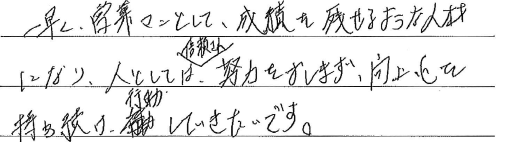 一早く、営業マンとして、成績を残せるような人材
になり、人としては、努力をおしまず、向上心を
持ち続け、行動していきたいです。